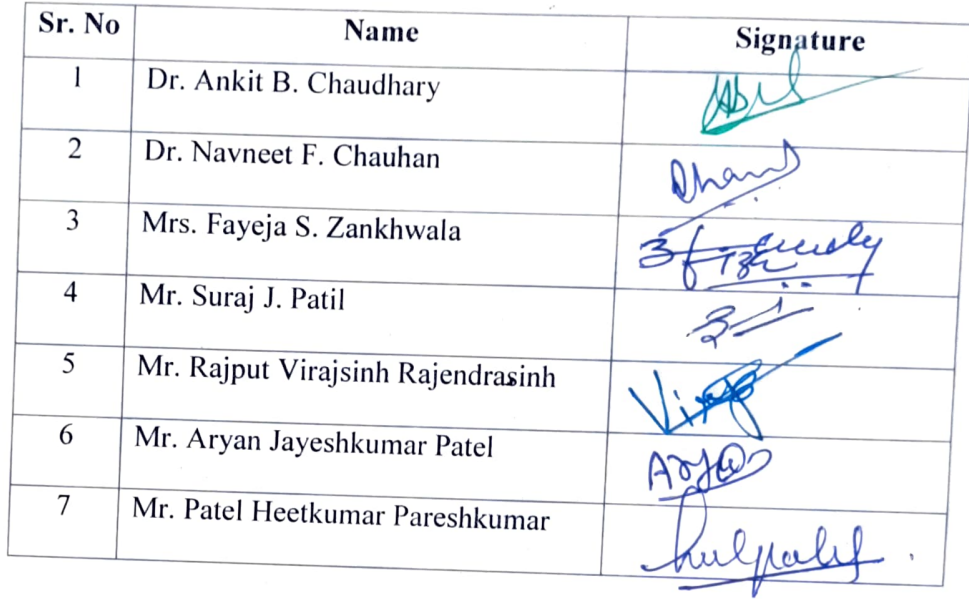 Sr. No Name Signature
1 Dr. Ankit B. Chaudhary
2 Dr. Navneet F. Chauhan
3 Mrs. Fayeja S. Zankhwala
4 Mr. Suraj J. Patil
5 Mr. Rajput Virajsinh Rajendrasinh
6 Mr. Aryan Jayeshkumar Patel
7 Mr. Patel Heetkumar Pareshkumar